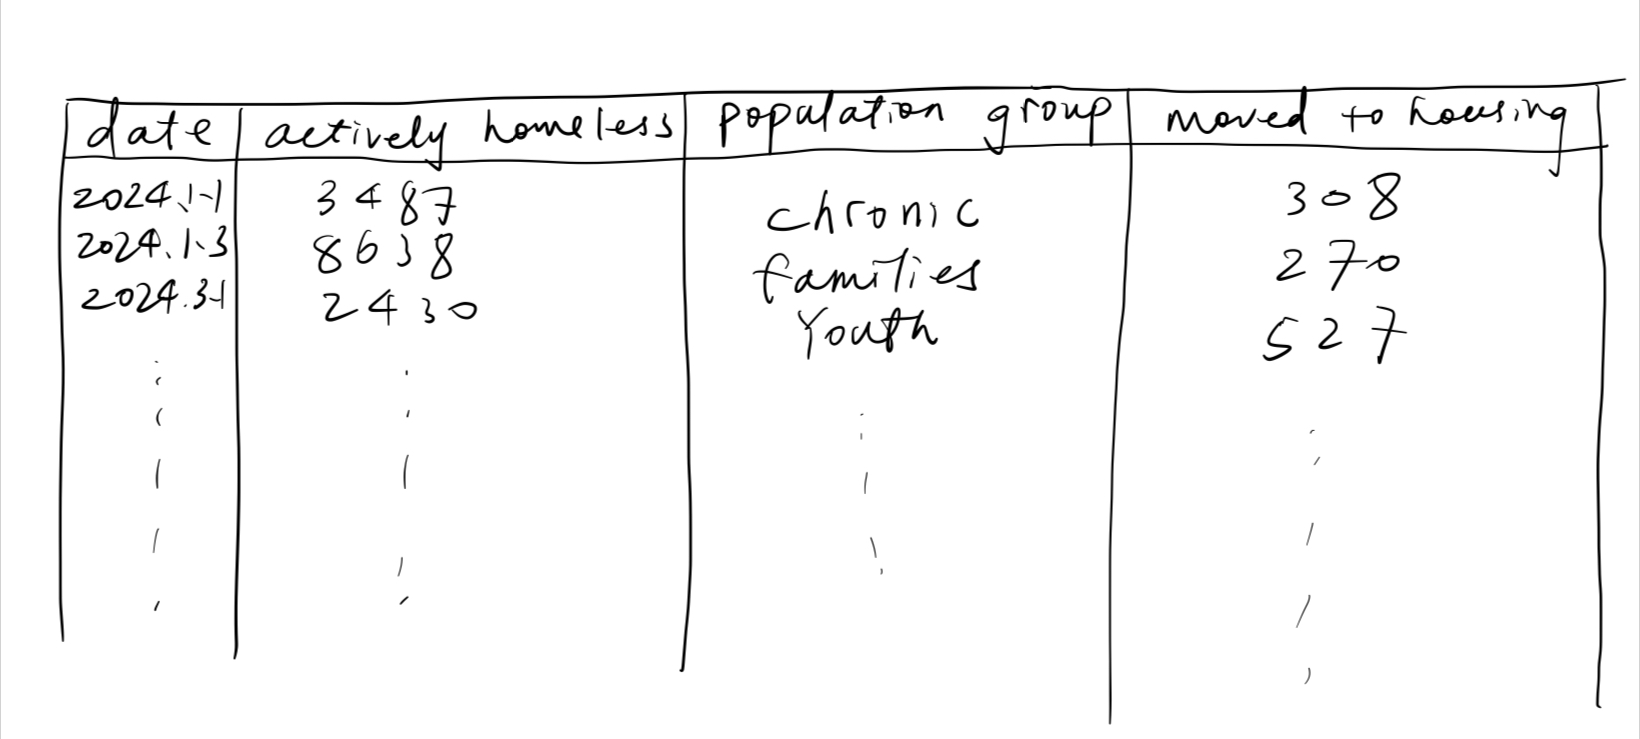 date actively homeless population group moved to housing
2024.1-1 3487 chronic 308
2024.1.3 8638 families 270
2024.3-1 2430 Youth 527